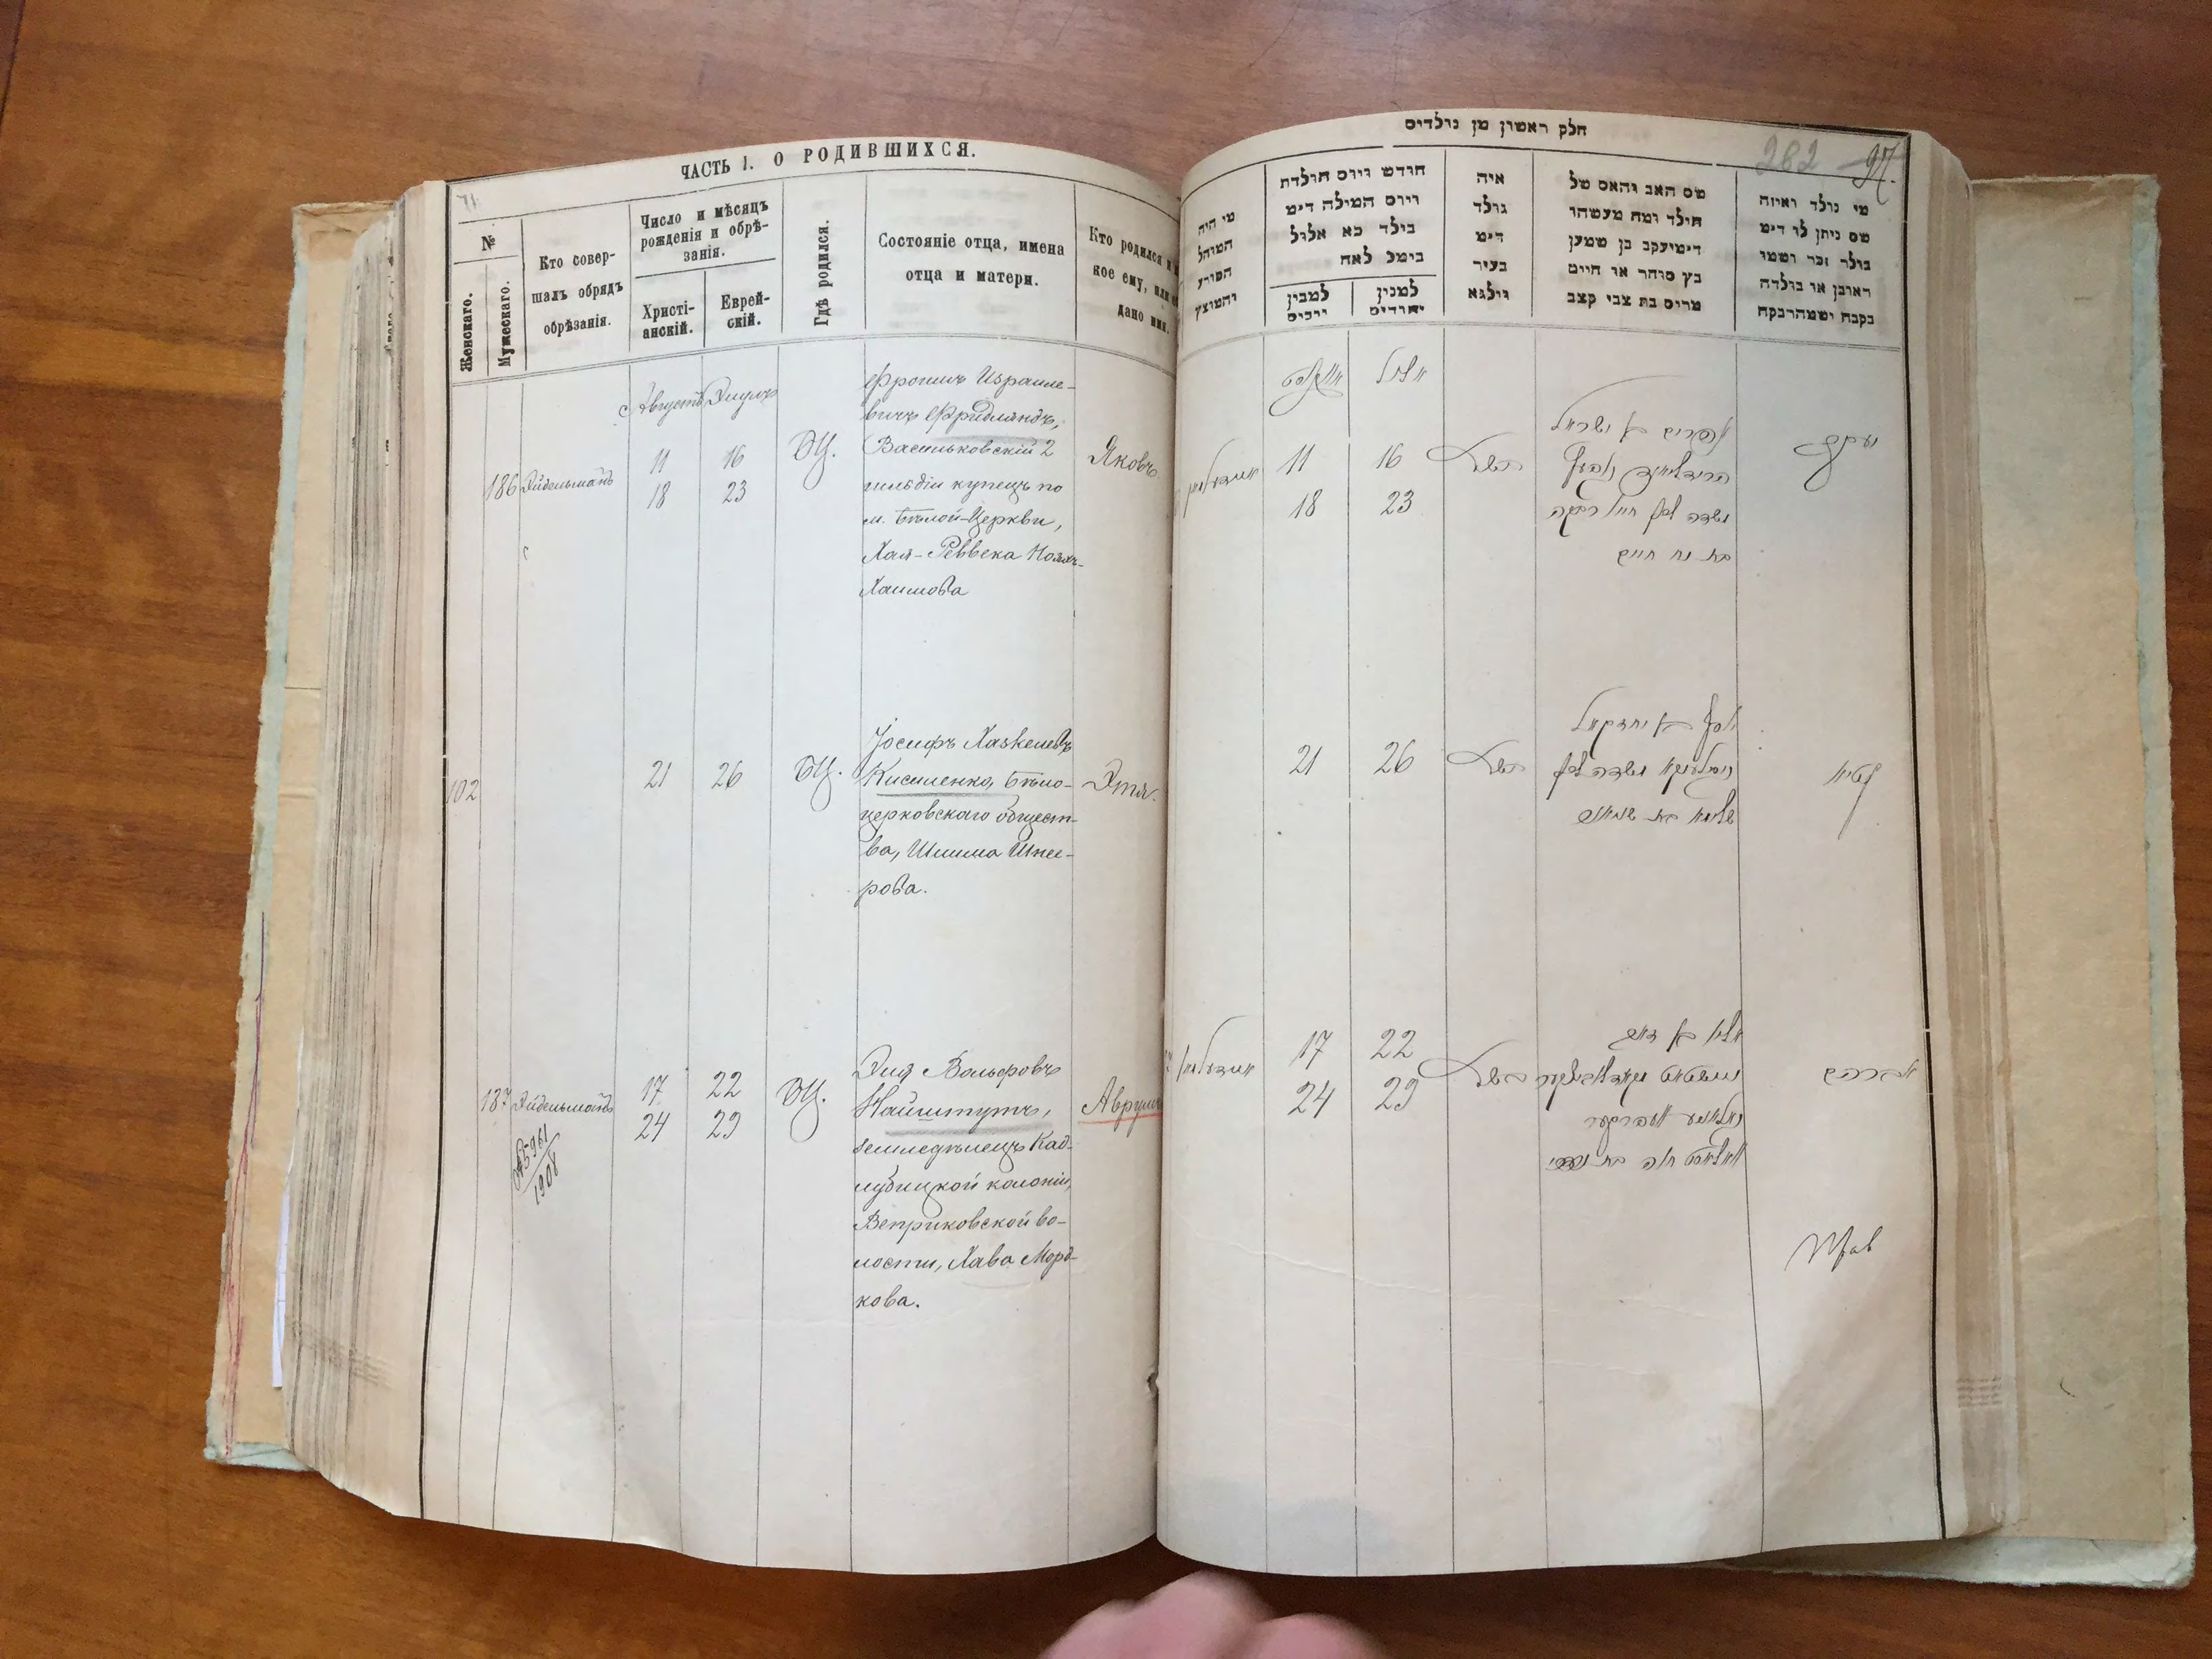 ЧАСТЬ I. О РОДИВШИХСЯ.
№
Женскаго.
Мужескаго.
Кто совер-
шалъ обрядъ
обрѣзанія.
Число и мѣсяцъ
рожденія и обрѣ-
занія.
Христі-
анскій.
Еврей-
скій.
Гдѣ родился.
Состояніе отца, имена
отца и матери.
Кто родился и
кое ему, или
дано имя.
Августъ Элулъ
186 Эйдельманъ
11 16
18 23
БЦ.
Фроимъ Израиле-
вичъ Фридляндъ,
Васильковскій 2
гильдіи купецъ по
м. Бѣлой-Церкви,
Хая-Реввека Нояхъ-
Хаимова
Яковъ
102
21 26
БЦ.
Іосифъ Хаскелевъ
Кисиленко, Бѣло-
церковскаго общест-
ва, Шлима Шнее-
рова.
Этя.
187 Эйдельманъ
№5961
1908
17 22
24 29
БЦ.
Эля Вольфовъ
Найштутъ,
земледѣлецъ Кад-
лубицкой колоніи,
Веприковской во-
лости, Хава Морд-
кова.
Аврумъ
חלק ראשון מן נולדים
262 97.
מי היה
המוהל
הפורע
והמוצץ
חודש ויום הולדת
ויום המילה דימ
בילד כא אלול
בימל לאח
למנין
יהודים
למנין
איה
נולד
דימ
בעיר
ווילנא
שם האב והאם של
הילד ומה מעשהו
דימיעקב בן שמעון
כץ סוחר או חייט
מרים בת צבי קצב
מי נולד ואיזה
שם ניתן לו דימ
בולד זכר ושמו
ראובן או בולדה
נקבה ושמהרבקה
אוגוסט אלול
11 16
18 23
אפרים בן ישראל
בת נח חיים
יעקב
21 26
יוסף בן יחזקאל
עטיא
17 22
24 29
אברהם